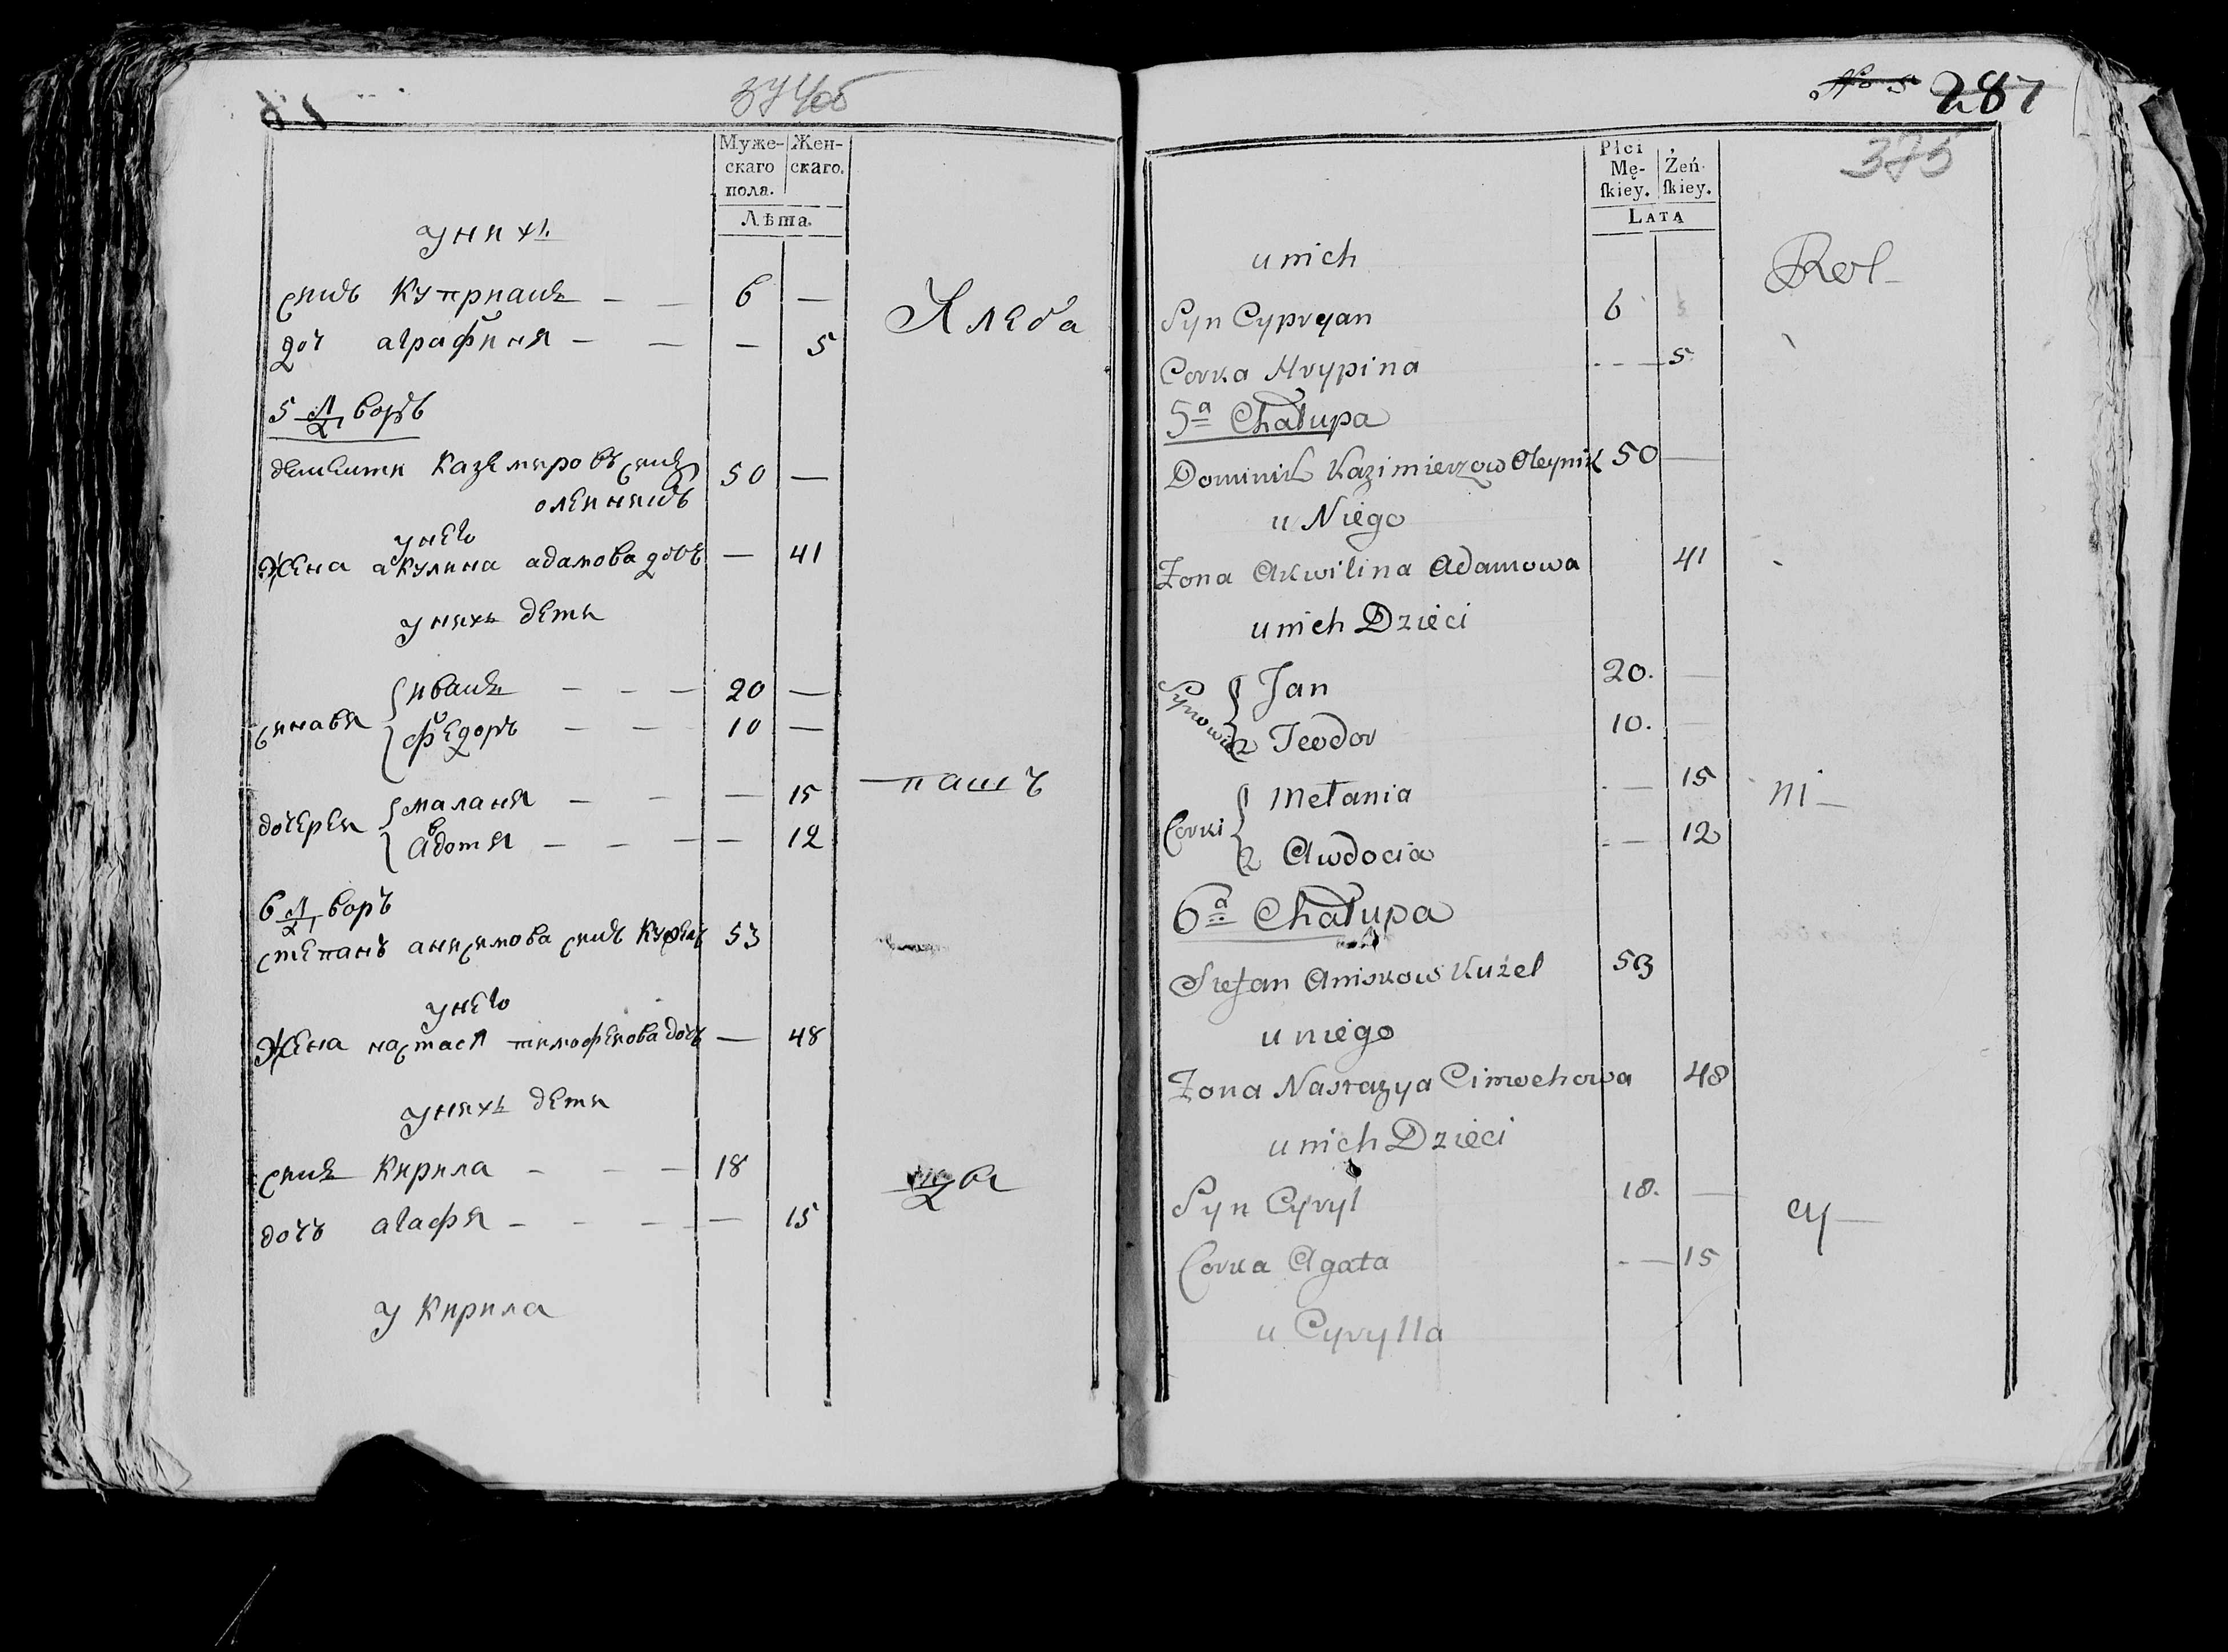 374об
Муже- Жен-
скаго скаго.
пола.
Лѣта.
у нихъ
сынъ Куприанъ — — 6 —
доч аграфиня — — — 5
5й дворъ
дементи Каземировъ сынъ 50 —
олеиникъ
у него
Жена акулина адамова дочь — 41
у нихъ дети
сыновя { иванъ — — — 20 —
{ федоръ — — — 10 —
дочереи { маланя — — — 15
{ авдотя — — — — 12
6й дворъ
степанъ анисимова сынъ Кужель 53
у него
Жена настася тимофеиова дочь — 48
у нихъ дети
сынъ Кирила — — — 18
дочь агафя — — — — 15
у Кирила
Хлеба
пашъ
287
375
Płci
Mę- Żeń-
ſkiey. ſkiey.
LATA
u nich
Syn Cypryan 6
Corka Hrypina - - — 5
5a Chałupa
Dominik Kazimierzow Oleynik 50 —
u Niego
Zona Akwilina Adamowa 41
u nich Dzieci
Synowie { Jan 20. —
2 Teodor 10. —
Corki { Mełania - — 15
2 Awdocia - — 12
6a Chałupa
Stefan Aniskow Kużel 53
u niego
Zona Nastazya Cimochowa 48
u nich Dzieci
Syn Cyryl 18. —
Corka Agata - — 15
u Cyrylla
Rol-
ni-
cy-